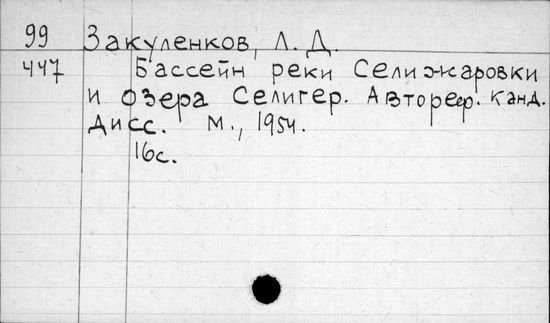 99 Закуленков, Л. Д.
447 Бассейн реки Селижаровки
и озера Селигер. Автореф. канд.
дисс. М., 1954.
16с.